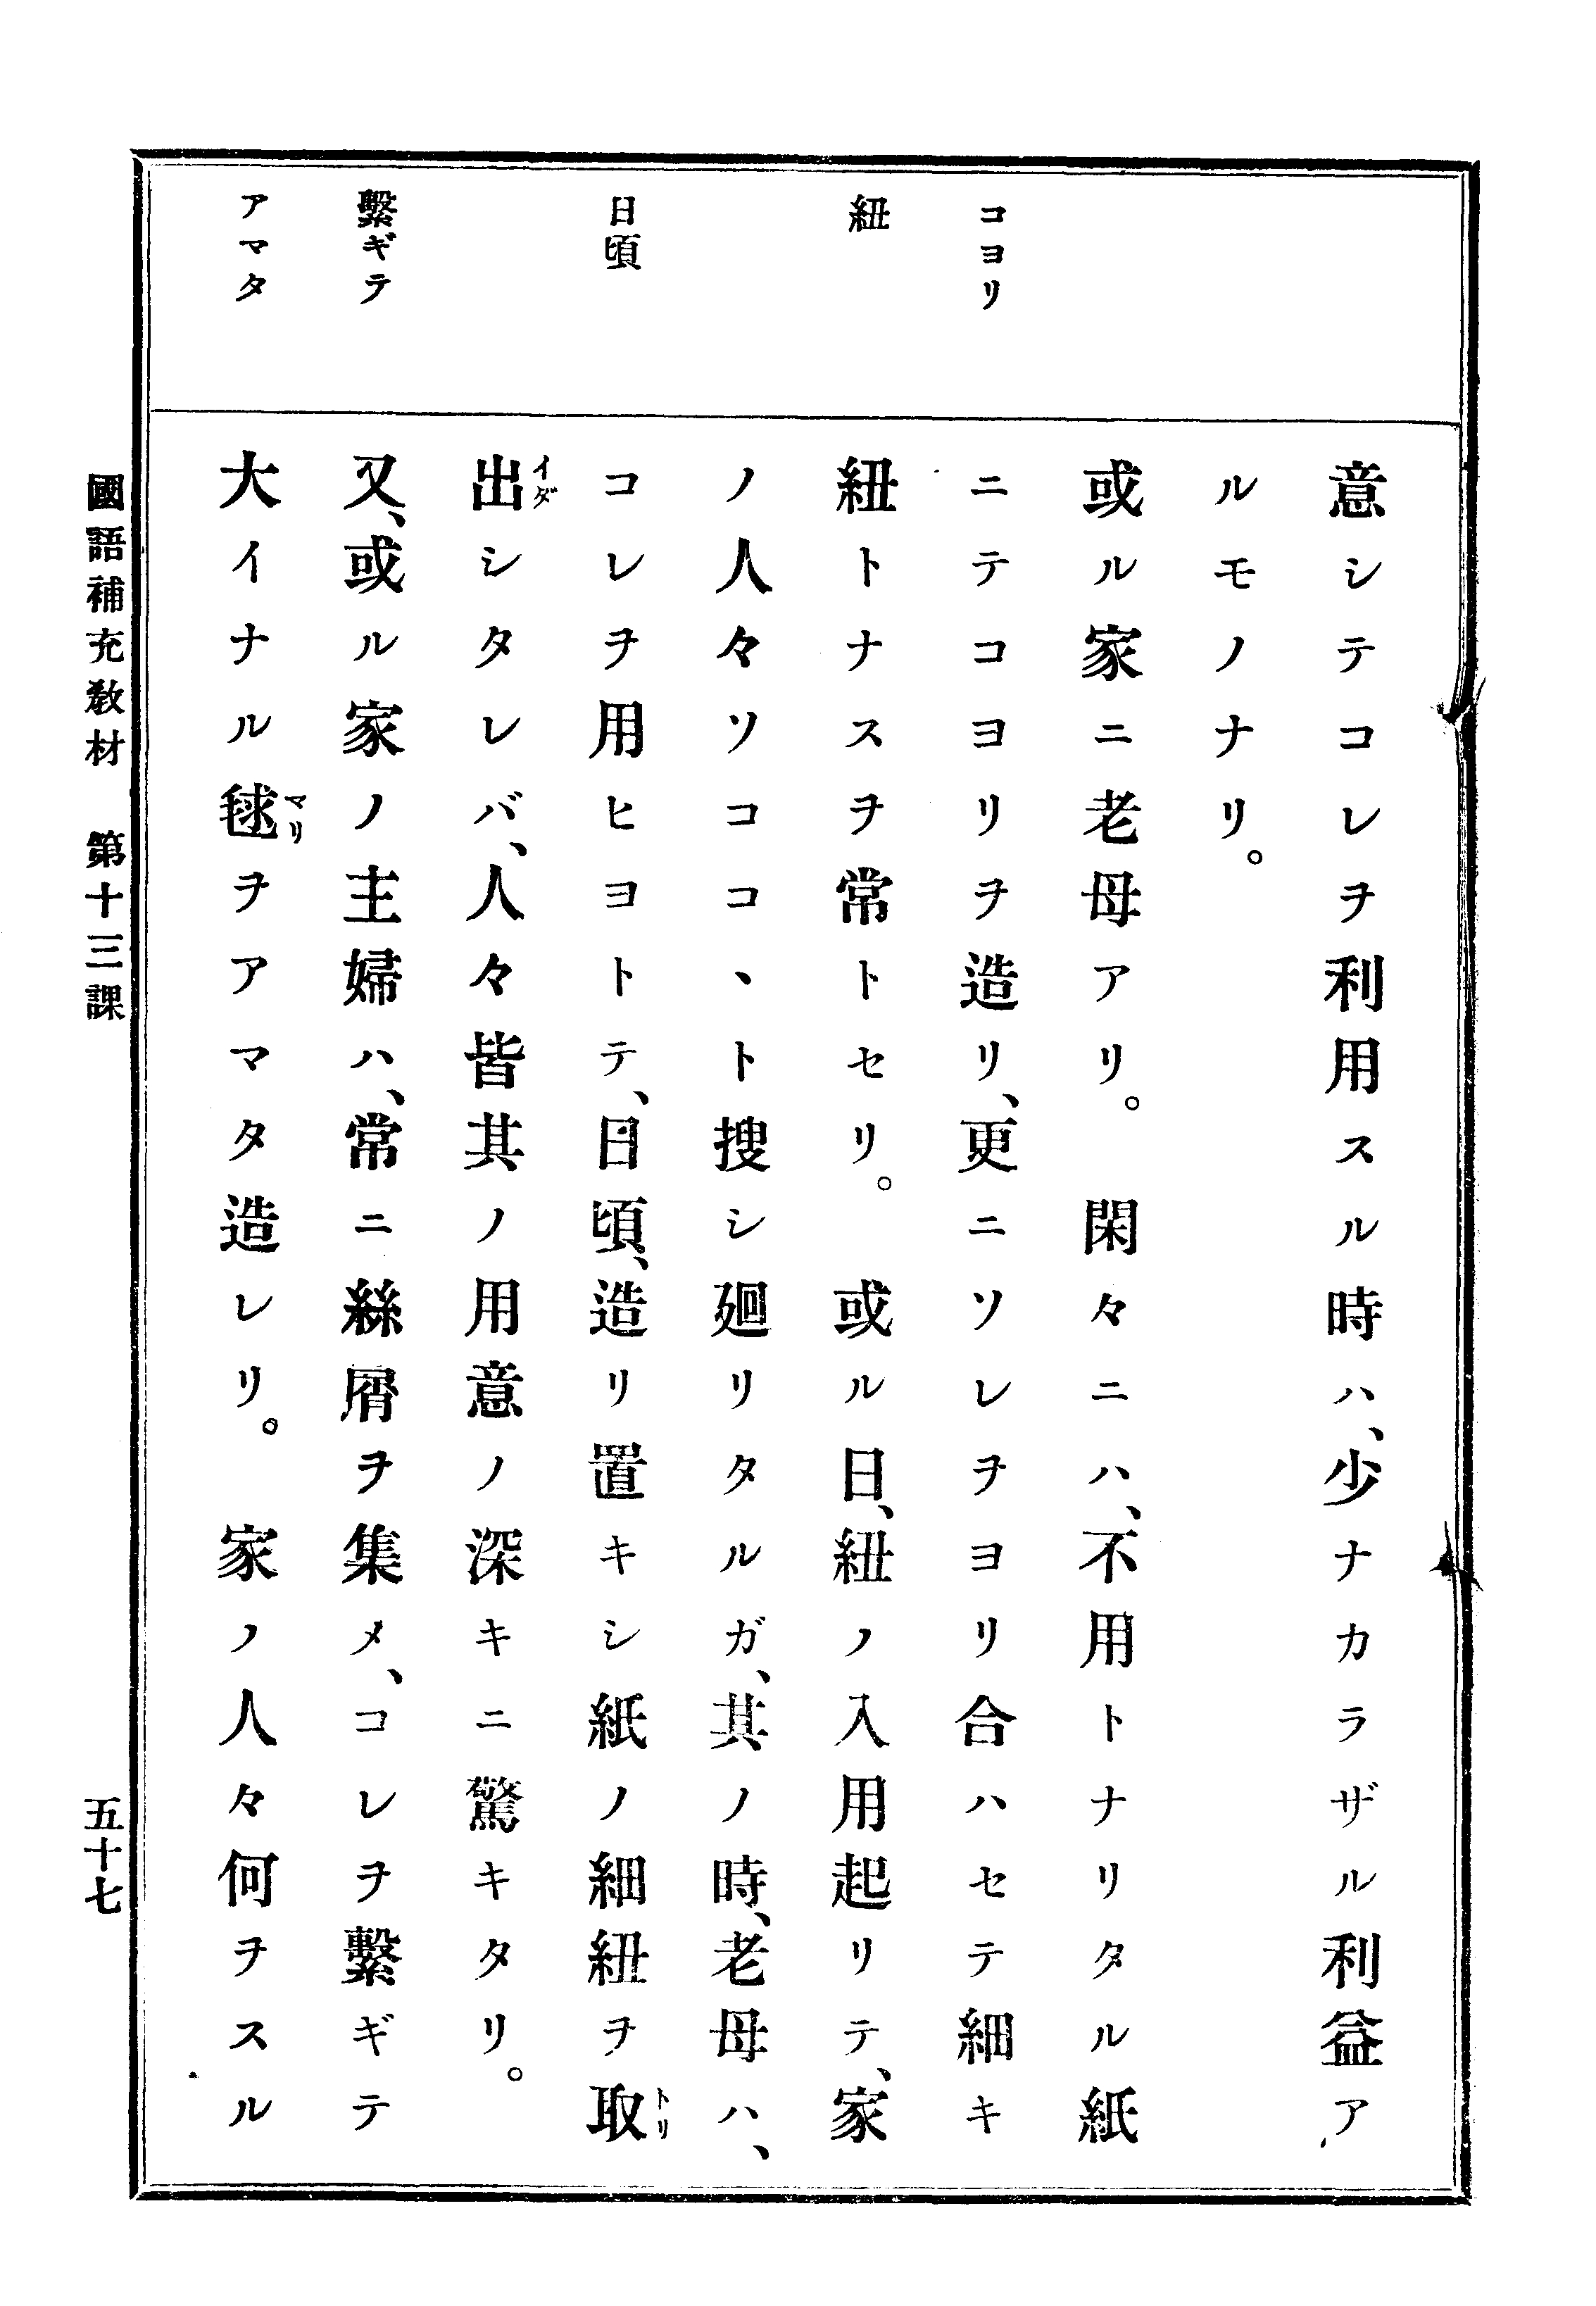 コヨリ
紐
日頃
繫ギテ
アマタ
意シテコレヲ利用スル時ハ、少ナカラザル利益ア
ルモノナリ。
或ル家ニ老母アリ。 閑々ニハ、不用トナリタル紙
ニテコヨリヲ造リ、更ニソレヲヨリ合ハセテ細キ
紐トナスヲ常トセリ。 或ル日、紐ノ入用起リテ、家
ノ人々ソココ、ト捜シ廻リタルガ、其ノ時、老母ハ、
コレヲ用ヒヨトテ、日頃、造リ置キシ紙ノ細紐ヲ取トリ
出イダシタレバ、人々皆其ノ用意ノ深キニ驚キタリ。
又、或ル家ノ主婦ハ、常ニ絲屑ヲ集メ、コレヲ繫ギテ
大イナル毬マリヲアマタ造レリ。 家ノ人々何ヲスル
國語補充敎材 第十三課 五十七